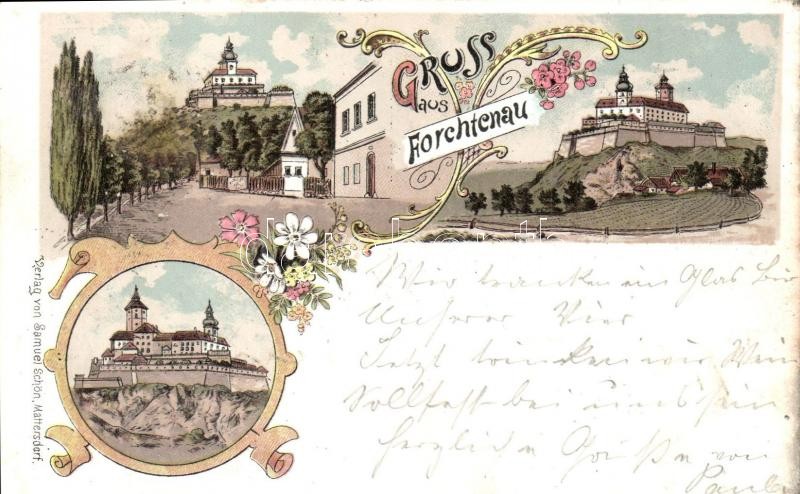 Gruss
aus
Forchtenau
Verlag von Samuel Schön, Mattersdorf.
Wir tranken ein Glas Bier
Unserer Vier
Jetzt trinken wir Wein
Sollst bei uns sein
Herzliche Grüße von
Paul